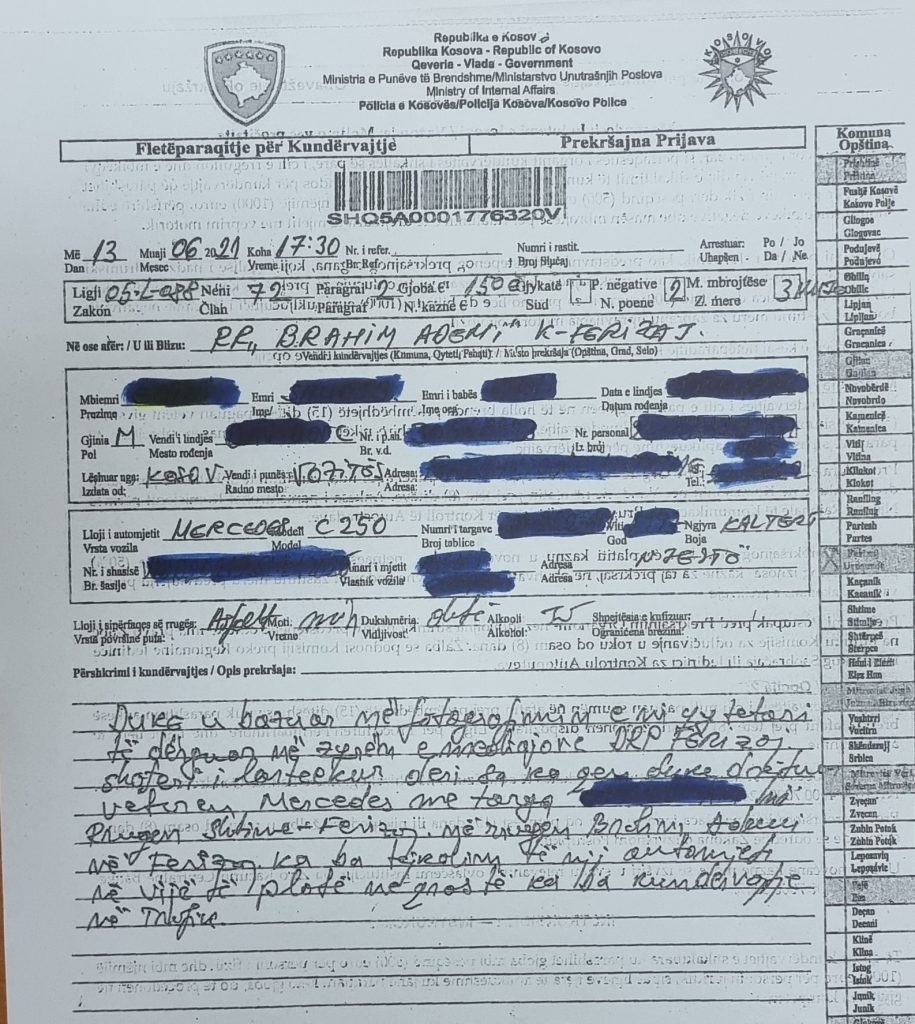 Republika e Kosovës
Republika Kosova - Republic of Kosovo
Qeveria - Vlada - Government
Ministria e Punëve të Brendshme/Ministarstvo Unutrašnjih Poslova
Ministry of Internal Affairs
Policia e Kosovës/Policija Kosova/Kosovo Police
KOSOVO
Fletëparaqitje për Kundërvajtje Prekršajna Prijava
SHQ5A0001776320V
Më 13 Muaji 06 2021 Koha 17:30 Nr. i refer. Numri i rastit. Arrestuar: Po / Jo
Dan Mesec Vreme Br. Ref. Broj Slučaj Uhapšen: Da / Ne
Ligji 05-L-088 Neni 72 Paragraf 2 Gjoba € 150 € Gjykatë P. negative 2 M. mbrojtëse 3
Zakon Član Paragraf N. kazne € Sud N. poene Z. mere
Në ose afër: / U ili Blizu: RR,, BRAHIM ADEMI" K-FERIZAJ.
Vendi i kundërvajtjes (Komuna, Qyteti, Fshati): / Mesto prekršaja (Opština, Grad, Selo)
Mbiemri Emri Emri i babës Data e lindjes
Prezime Ime Ime oca Datum rođenja
Gjinia M Vendi i lindjes Nr. i p.sh. Nr. personal
Pol Mesto rođenja Br. v.d. Lz. broj
Lëshuar nga: KOSOV Vendi i punës: VOZITËS Adresa: Tel.:
Izdata od: Radno mesto Adresa:
Lloji i automjetit MERCEDES Modeli C 250 Numri i targave Viti Ngjyra KALTERT
Vrsta vozila Model Broj tablice God Boja
Nr. i shasisë Pronari i mjetit Adresa N-JESTË
Br. šasije Vlasnik vozila Adresa
Lloji i sipërfaqes së rrugës: Asfalt Moti: mirë Dukshmëria: ditë Alkooli Shpejtësia e kufizuar:
Vrsta površine puta: Vreme Vidljivost: Alkohol: Ograničena brzina:
Përshkrimi i kundërvajtjes / Opis prekršaja:
Duke u bazuar në fotografimin e një qytetari
të dërguar në zyrën e mediave DRP Ferizaj
shoferi i lartcekur deri sa ka qen duke drejtu
veturen Mercedes me targa në
Rrugen Shtime-Ferizaj në rrugën Brahim Ademi
në Ferizaj ka ba tejkalim të nji automjeti
në vijë të plotë me çrast ka ba kundervajtje
në Trafik.
Komuna
Opština
Prishtinë
Priština
Fushë Kosovë
Kosovo Polje
Gllogoc
Glogovac
Podujevë
Podujevo
Obiliq
Obilić
Lipjan
Lipljan
Graçanicë
Gračanica
Gjilan
Gnjilane
Novobërdë
Novobrdo
Kamenicë
Kamenica
Viti
Vitina
Kllokot
Klokot
Ranillug
Ranilug
Partesh
Parteš
Ferizaj
Uroševac
Kaçanik
Kačanik
Shtime
Štimlje
Shtërpcë
Štrpce
Hani i Elezit
Elez Han
Vushtrri
Vučitrn
Skënderaj
Srbica
Zveçan
Zvečan
Zubin Potok
Zubin Potok
Leposaviq
Leposavić
Pejë
Peć
Deçan
Dečani
Klinë
Klina
Istog
Istok
Junik
Junik